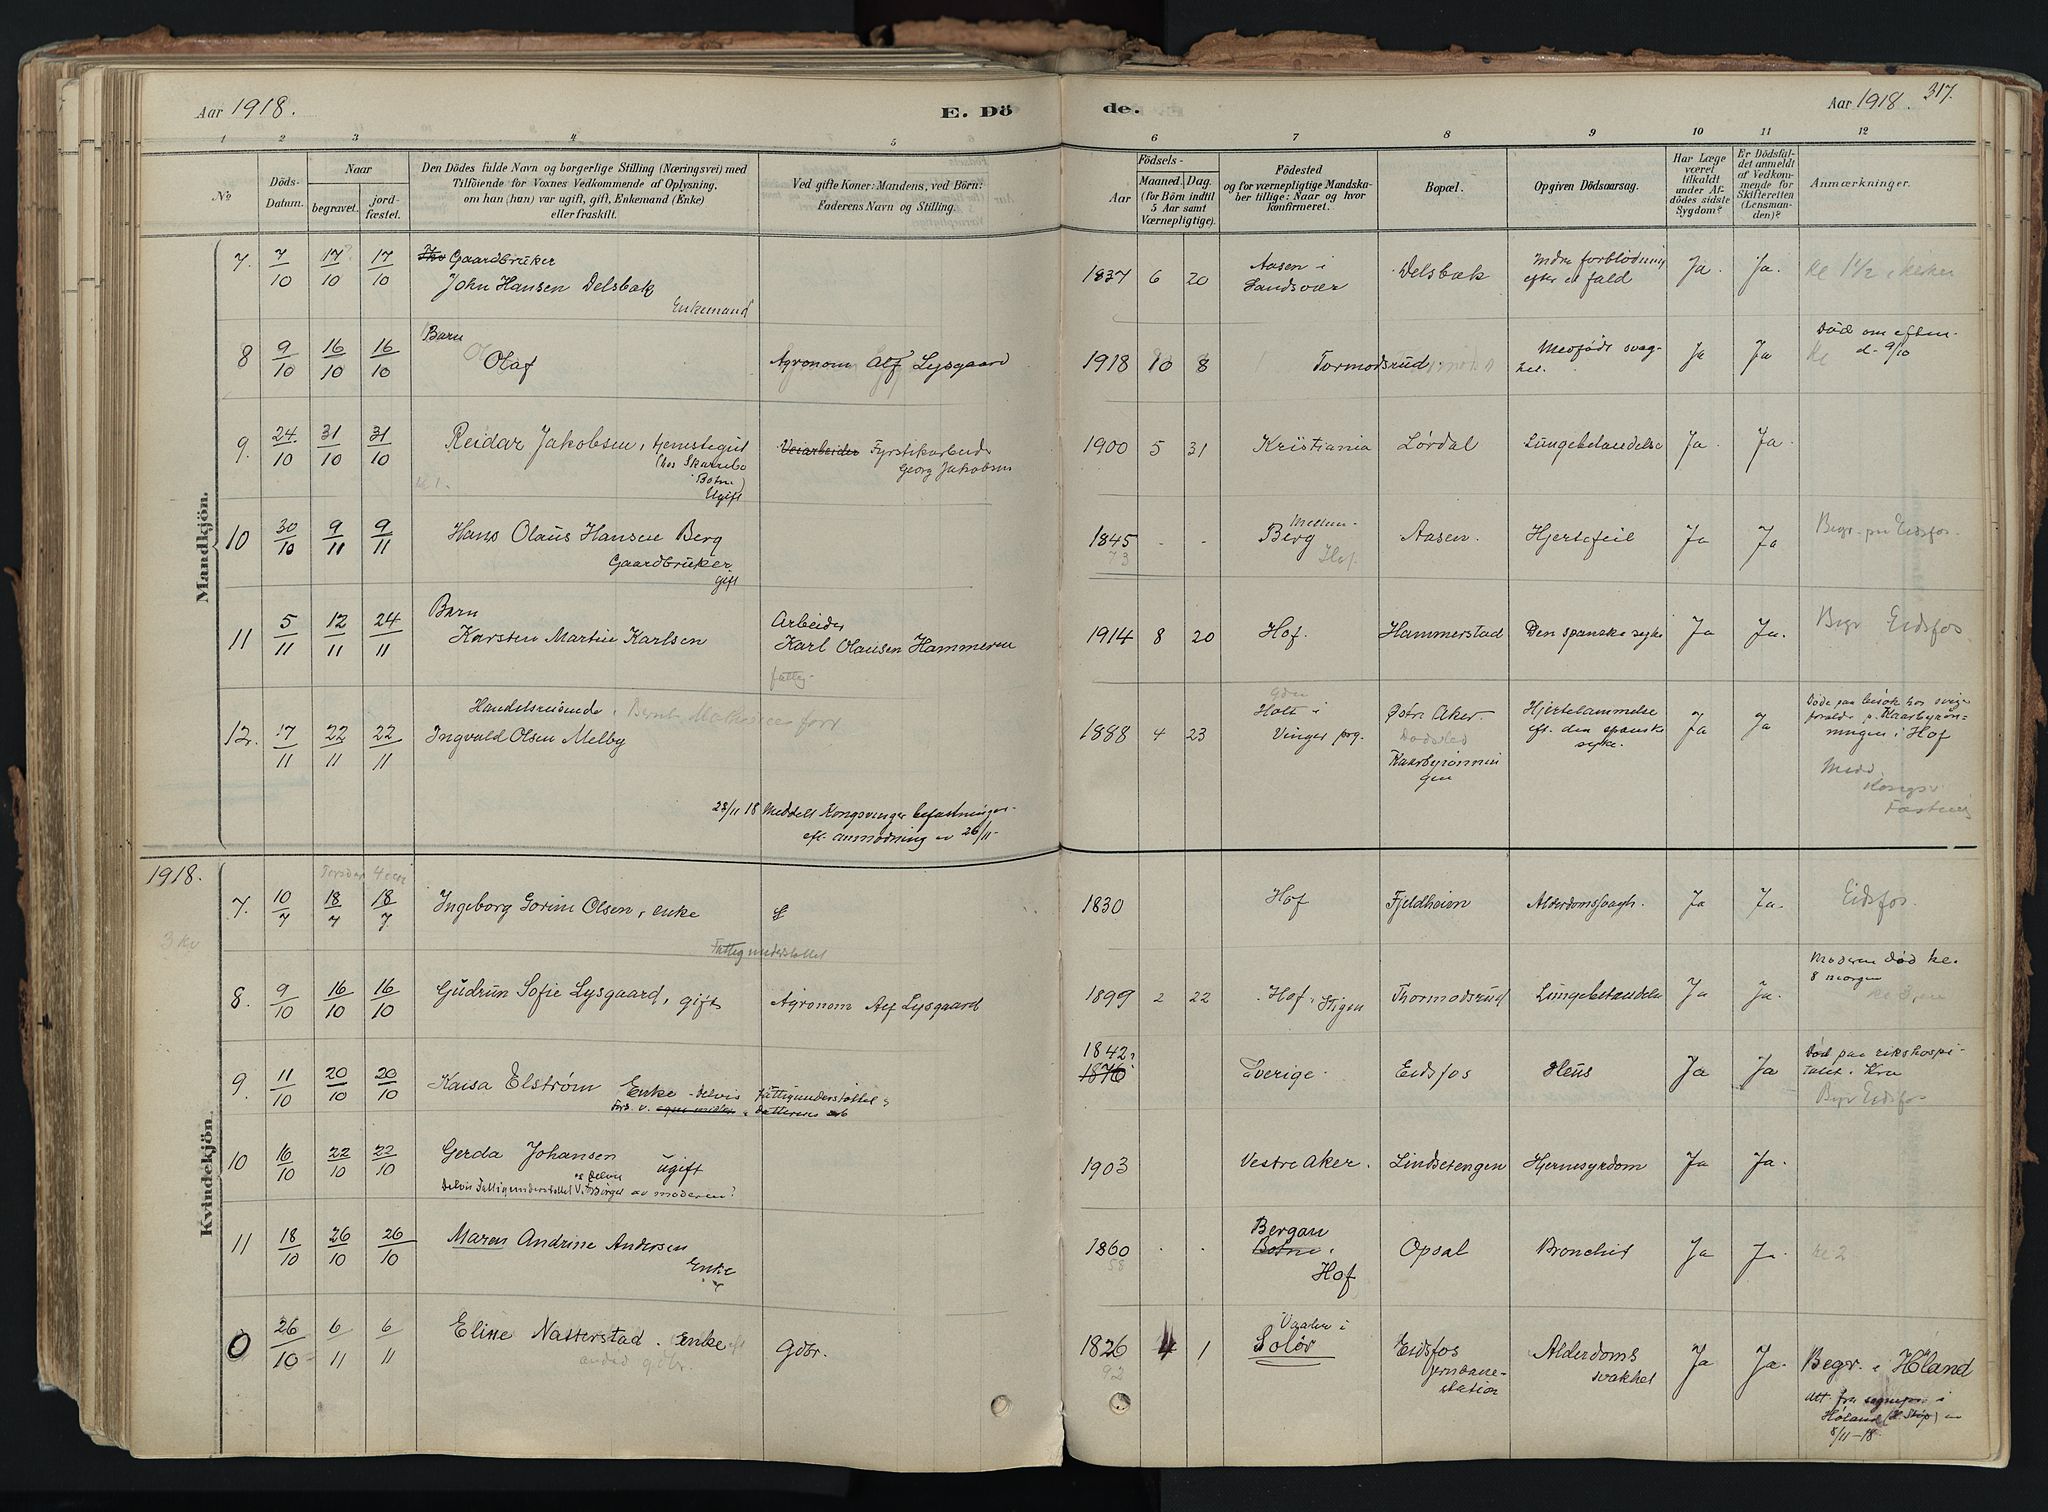 Aar 1918.
E. Dö
de.
Aar 1918.
317.
1 2 3 4 5 6 7 8 9 10 11 12
No
Döds-
Datum.
Naar
begravet.
jord-
fæstet.
Den Dödes fulde Navn og borgerlige Stilling (Næringsvei) med
Tilföiende for Voxnes Vedkommende af Oplysning,
om han (hun) var ugift, gift, Enkemand (Enke)
eller fraskilt.
Ved gifte Koner: Mandens, ved Börn:
Faderens Navn og Stilling.
Födsels-
Aar
Maaned. Dag.
(for Börn indtil
5 Aar samt
Værnepligtige).
Födested
og for værnepligtige Mandska-
ber tillige: Naar og hvor
konfirmeret.
Bopæl.
Opgiven Dödsaarsag.
Har Læge
været
tilkaldt
under Af-
dödes sidste
Sygdom?
Er Dödsfal-
det anmeldt
af Vedkom-
mende for
Skifteretten
(Lensman-
den)?
Anmærkninger.
Mandkjön.
7. 7/10 17/10 17/10 Gaardbruker
John Hansen Delsbak
Enkemand
1837 6 20 Aasen i
Sandsvær
Delsbak
Indre forblødning
efter et fald
Ja. Ja. kl 1½
8 9/10 16/10 16/10 Barn
Olaf
Agronom Alf Lysgaard
1918 10 8 Tormodsrud
Medfødt svag-
het.
Ja Ja
Død om eftm.
d. 9/10
9. 24/10 31/10 31/10 Reidar Jakobsen, tjenestegut
(hos
Botne)
Ugift
Veiarbeider Fyrstikarbeider
Georg Jakobsen
1900 5 31 Kristiania Lørdal Lungebetændelse Ja. Ja.
10 30/10 9/11 9/11 Hans Olaus Hansen Berg
Gaardbruker
gift
1845 - -
73
Berg
Hof.
Aasen. Hjertefeil Ja Ja Begr. på Eidsfos.
11 5/11 12/11 24/11 Barn
Karsten Martin Karlsen
Arbeider
Karl Olausen Hammeren
fattig.
1914 8 20 Hof. Hammerstad Den spanske syke Ja Ja. Begr Eidsfos.
12. 17/11 22/11 22/11 Handelsreisende
Ingvald Olsen Melby
1888 4 23 Holt i
Vinger prg.
Østre Aker.
Dødssted
Kaarbyrønnin
gen
Hjertelammelse
eft. den spanske
syke.
Ja Ja
Døde paa besøk hos svige
forældre p. Kaarbyrøn-
ningen i Hof
Medd.
Kongsv.
Fæstning
28/11 18 Meddelt Kongsvinger befæstninger
eft. anmodning av 26/11-
1918.
Kvindekjön.
Torsdag 4
7. 10/7 18/7 18/7 Ingeborg Gorine Olsen, enke
1830 Hof Fjeldheim Alderdomssvagh. Ja Ja. Eidsfos.
Fattigunderstøttet
8. 9/10 16/10 16/10 Gudrun Sofie Lysgaard, gift
Agronom Alf Lysgaard
1899 2 22 Hof. Stigen Thormodsrud Lungebetændelse Ja Ja.
Moderen død kl.
8 morgen
9. 11/10 20/10 20/10 Kaisa Elstrøm Enke delvis fattigunderstøttet
Fors. v. egne midler
1842.
1876
Sverige. Eidsfos Ileus Ja Ja
Død paa rikshospi-
talet i Kra
Begr Eidsfos
10 16/10 22/10 22/10 Gerda Johansen
ugift
og delvis
Delvis Fattigunderstøttet forsørget av moderen?
1903 Vestre Aker. Lindsetengen Hjernesygdom Ja Ja.
11 18/10 26/10 26/10 Maren Andrine Andersen
Enke
1860 . .
58
Bergan
Botne.
Hof
Opsal Bronchit Ja Ja. kl 2
0 26/10 6/11 6/11 Eline Natterstad. Enke
gdbr.
Gdbr.
1826 4 1
92
Vaaler i
Solør
Eidsfos
jernbane-
station
Alderdoms
svakhet
Ja Ja.
Begr. i Høland
att. fra sognepr. i
Høland
8/11-18.